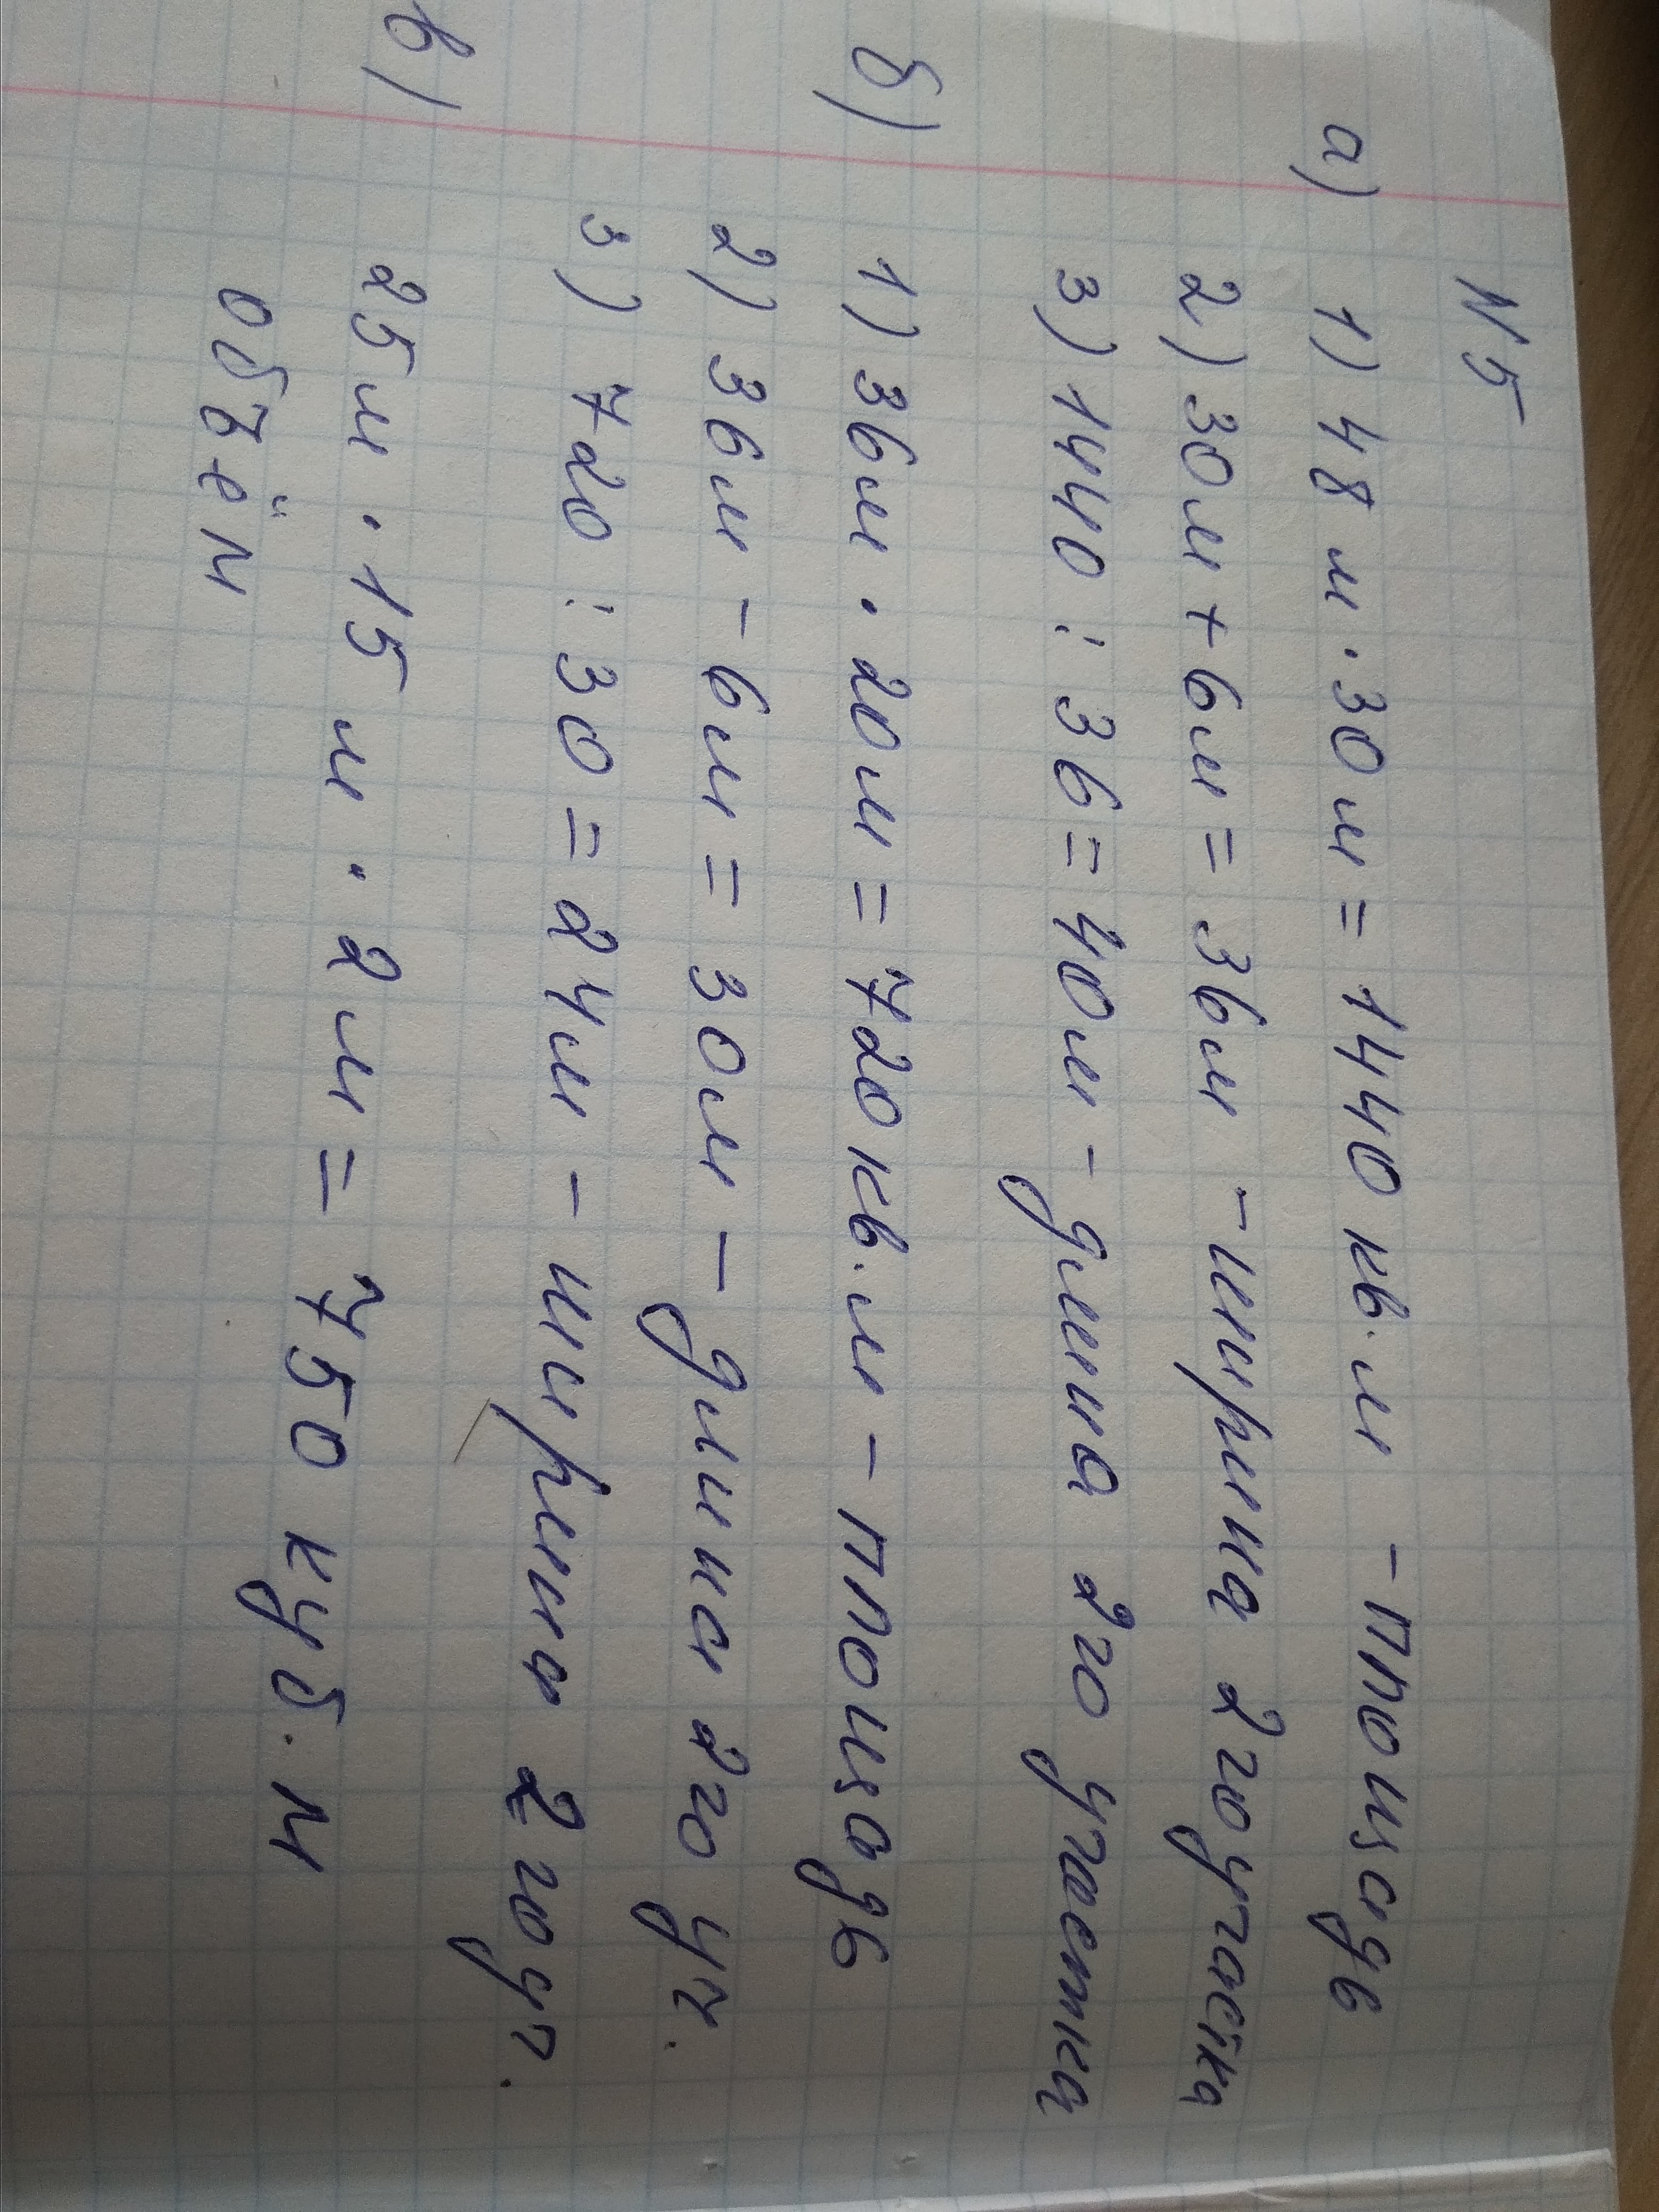 N5
а) 1) 48 м · 30 м = 1440 кв. м - площадь
2) 30 м + 6 м = 36 м - ширина 2го участка
3) 1440 : 36 = 40 м - длина 2го участка
б) 1) 36 м · 20 м = 720 кв. м - площадь
2) 36 м - 6 м = 30 м - длина 2го уч.
3) 720 : 30 = 24 м - ширина 2 го уч.
в) 25 м · 15 м · 2 м = 750 куб. м
объём